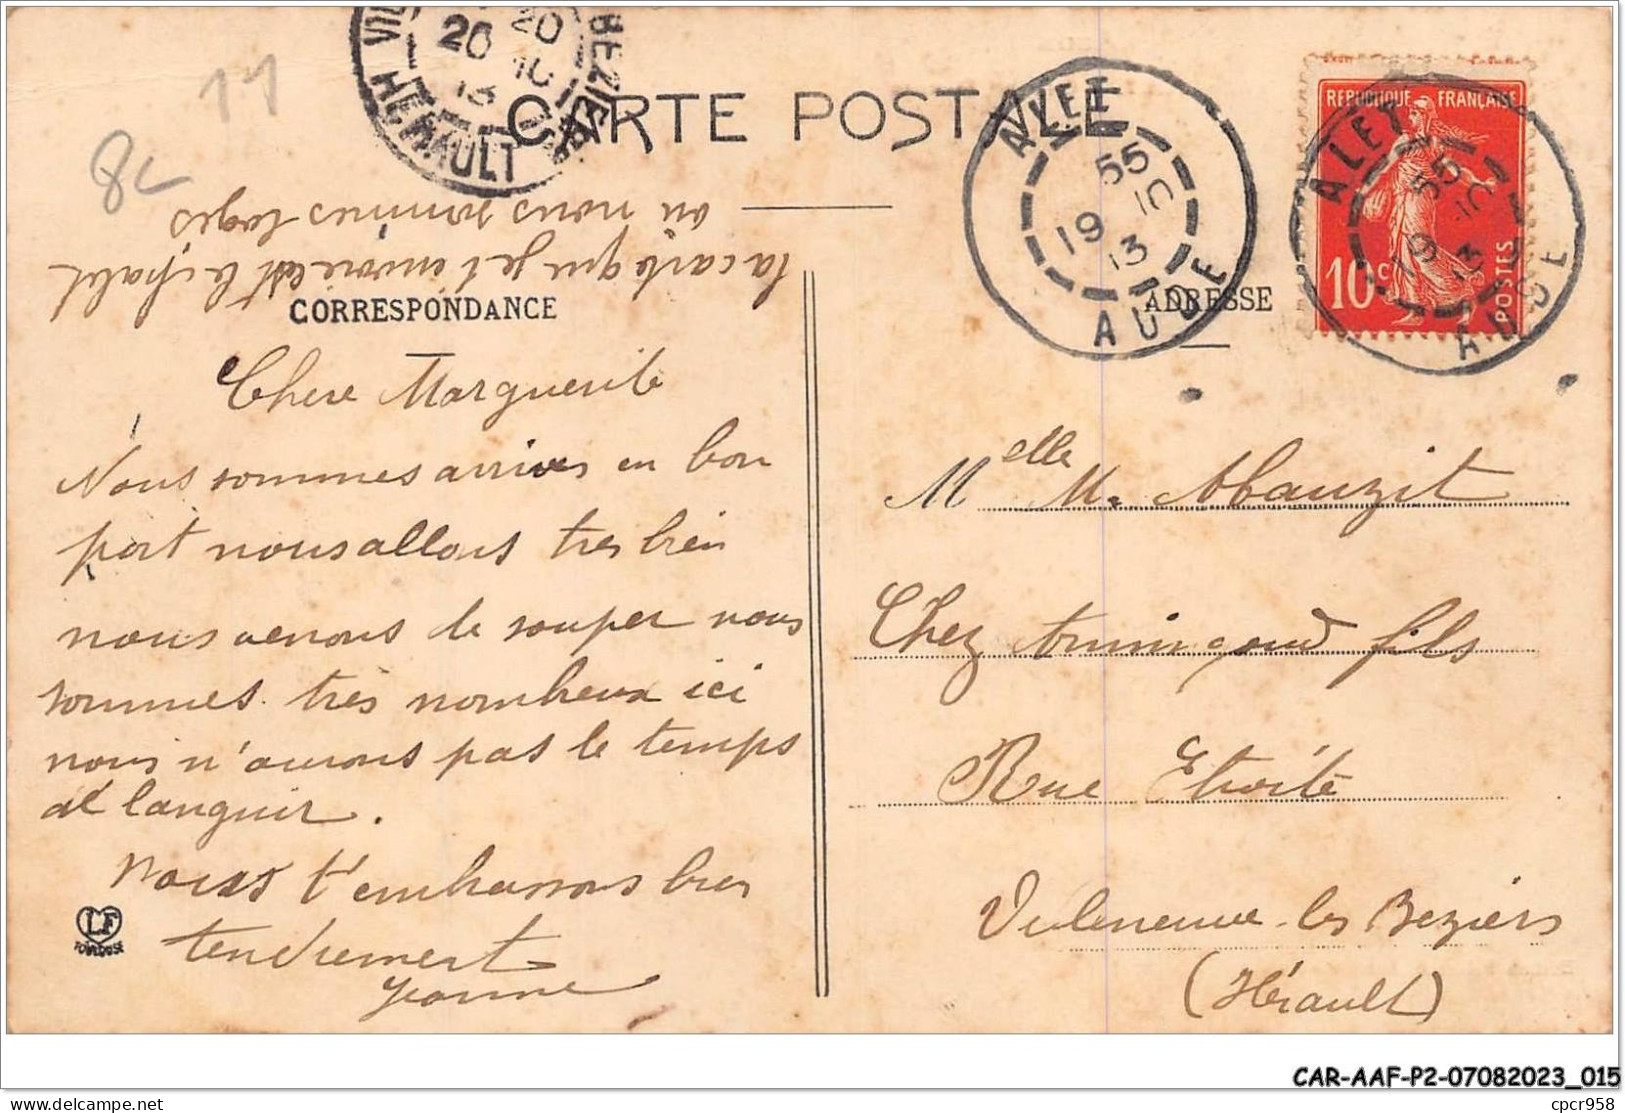 11
8c
VIL BEZIERS
20
20 10
13
HERAULT
CARTE POSTALE
ALET
55
19 10
13
AUDE
REPUBLIQUE FRANÇAISE
10c
POSTES
ALET
55
19 10
13
AUDE
la carte que je t'envoie est le chalet
ou nous sommes logés
CORRESPONDANCE
ADRESSE
Chere Marguerite
Nous sommes arrives en bon
port nous allons tres bien
nous venons de souper nous
sommes très nombreux ici
nous n'aurons pas le temps
de languir.
Nous t'embrassons bien
tendrement
Jeanne
LF
TOULOUSE
Melle M. Mauzit
Chez fils
Rue Etroite
Villeneuve-les Beziers
(Hérault)
CAR-AAF-P2-07082023_015
delcampe.net
cpcr958